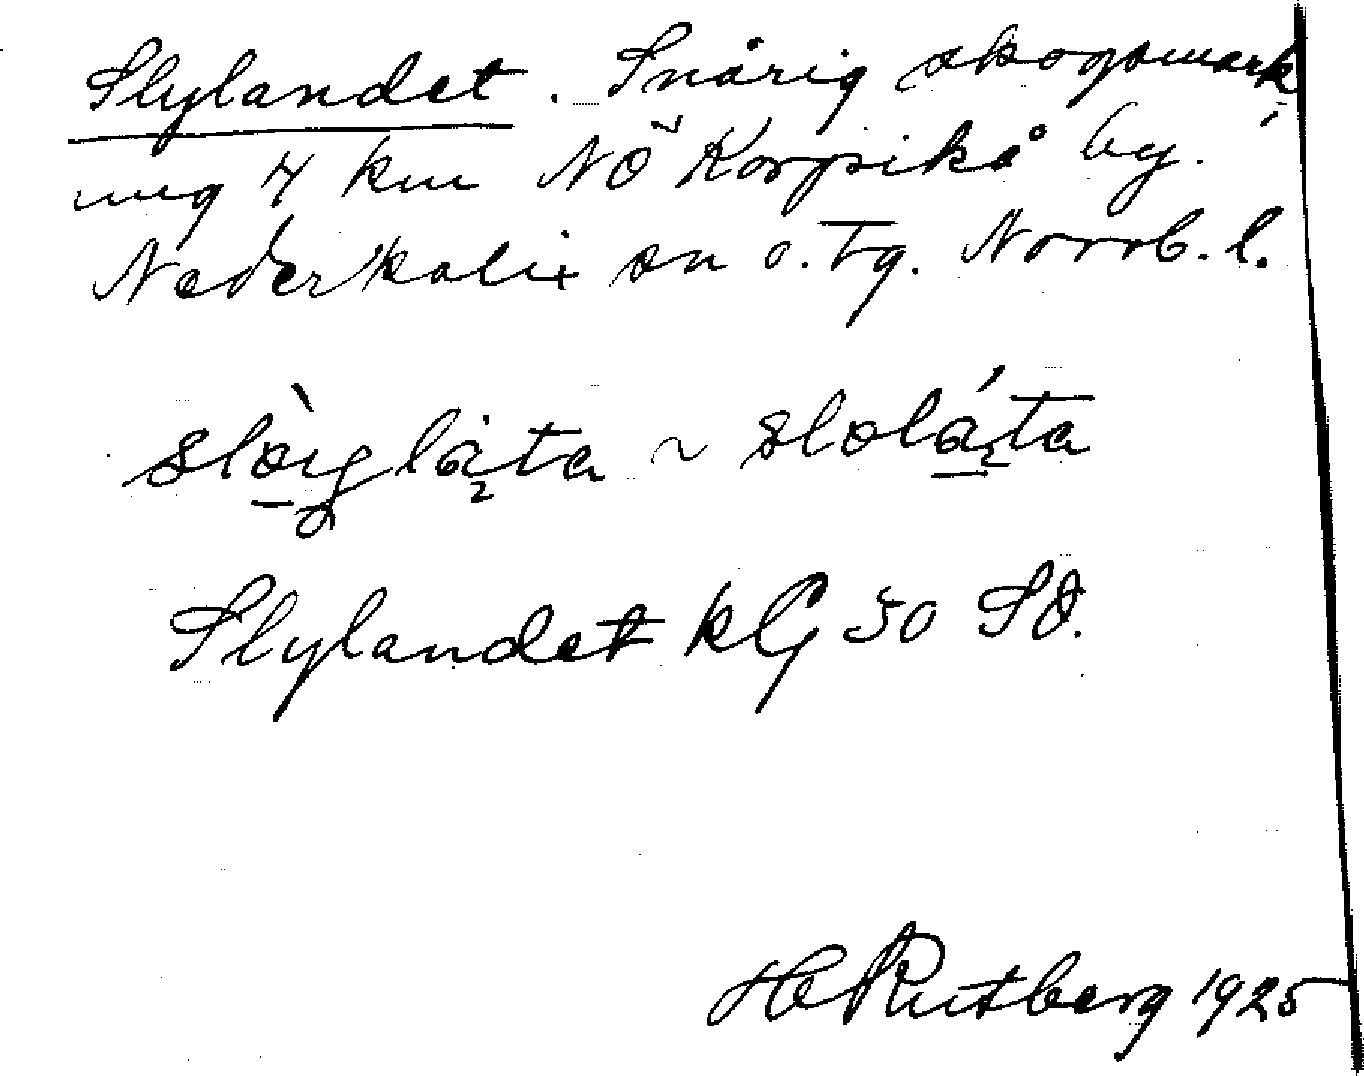 Slylandet. Snårig skogsmark,
ung 7 km NÖ Korpikå by.
Nederkalix sn o. tg. Norrb. l.
~
Slylandet kG 50 SO.
H Rutberg 1925